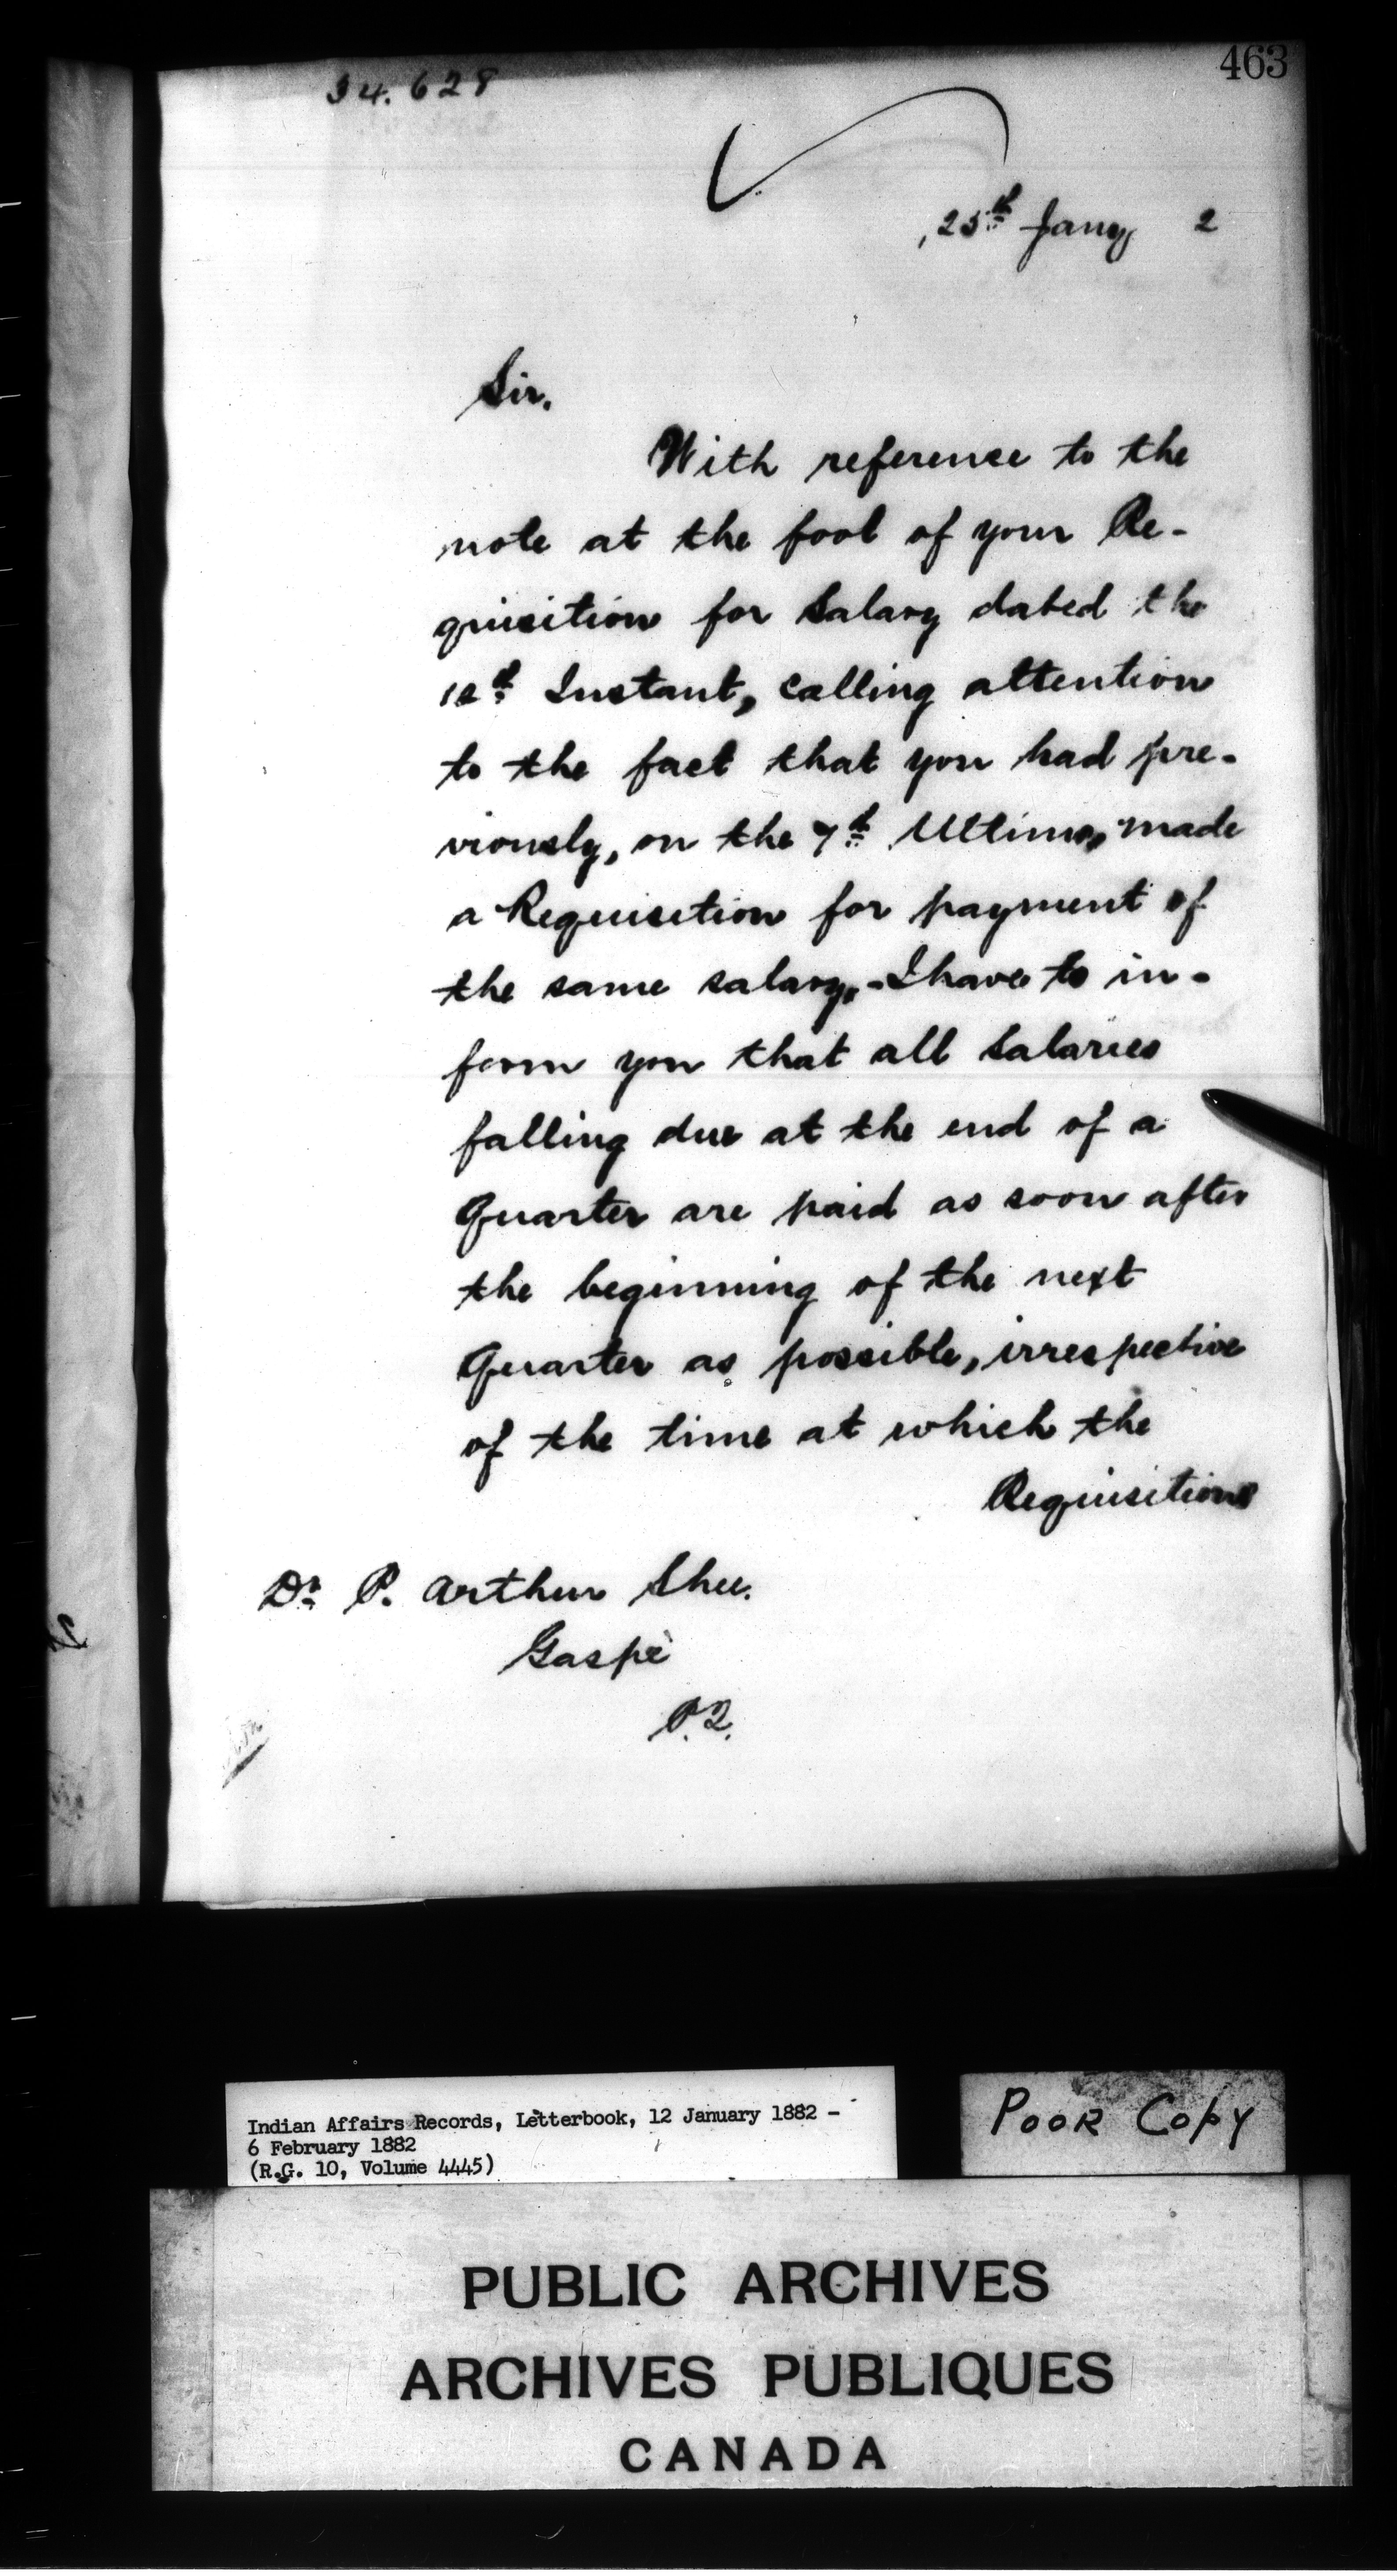 463
34.628
25th Jany 2
Sir.
With reference to the
note at the foot of your Re-
quisition for Salary dated the
12th Instant, Calling attention
to the fact that you had pre-
viously, on the 7th Ultimo, made
a Requisition for payment of
the same salary, - I have to in-
form you that all Salaries
falling due at the end of a
Quarter are paid as soon after
the beginning of the next
Quarter as possible, irrespective
of the time at which the
Requisitions
Dr. P. Arthur Shee.
Gaspé
P.Q.
Indian Affairs Records, Letterbook, 12 January 1882 -
6 February 1882
(R.G. 10, Volume 4445)
POOR COPY
PUBLIC ARCHIVES
ARCHIVES PUBLIQUES
CANADA